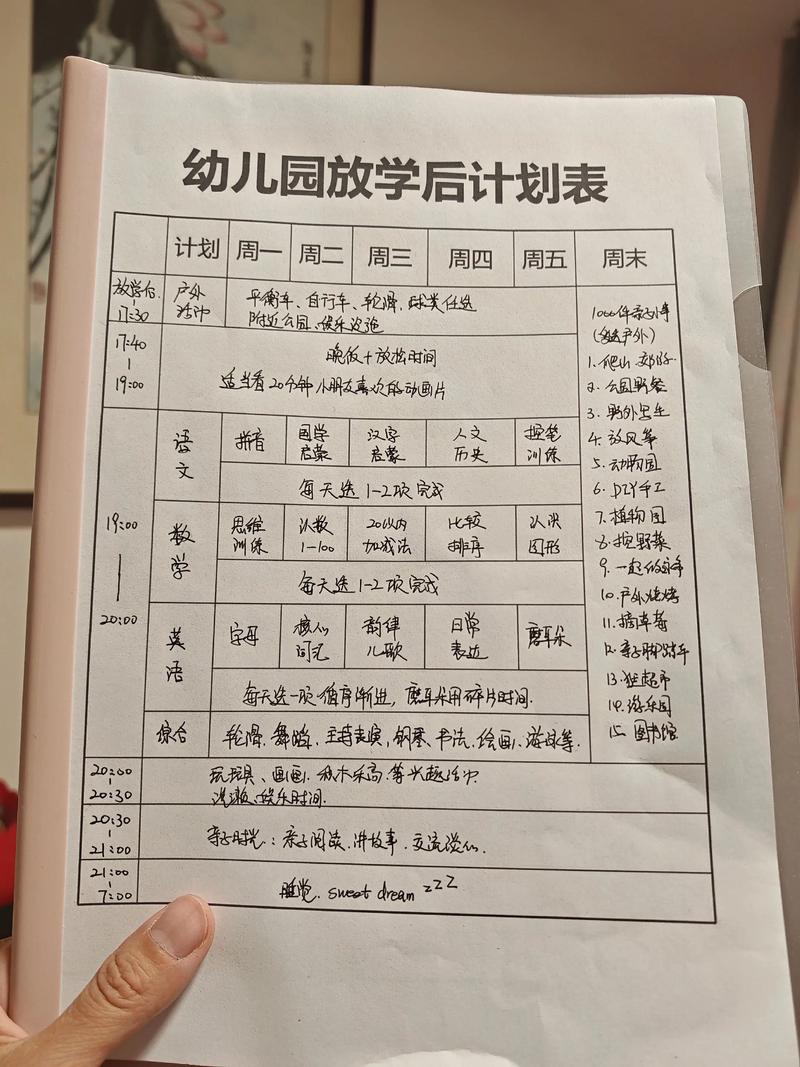 幼儿园放学后计划表
计划 周一 周二 周三 周四 周五 周末
放学后
17:30
户外
活动
平衡车、自行车、轮滑、球类任选
附近公园、娱乐设施
17:40
19:00
晚饭+放松时间
适当看20分钟小朋友喜欢的动画片
19:00
20:00
语文
拼音
国学
启蒙
汉字
启蒙
人文
历史
控笔
训练
每天选1-2项完成
数学
思维
训练
认数
1-100
20以内
加减法
比较
排序
认识
图形
每天选1-2项完成
英语
字母
核心
词汇
韵律
儿歌
日常
表达
磨耳朵
每天选一项循序渐进,磨耳朵用碎片时间.
综合
轮滑、舞蹈、主持表演,钢琴、书法、绘画、游泳等.
20:00
20:30
玩玩具、画画、积木乐高,等兴趣活动
洗漱、娱乐时间.
20:30
21:00
亲子时光:亲子阅读、讲故事、交流谈心.
21:00
7:00
睡觉. sweet dream zzz
1000件亲子小事
户外)
1、爬山 郊游
2、公园野餐
3、野外写生
4、放风筝
5、动物园
6、DIY手工
7、植物园
8、挖野菜
9、一起做家务
10、户外烧烤
11、摘草莓
12、亲子脚踏车
13、逛超市
14、游乐园
15、图书馆